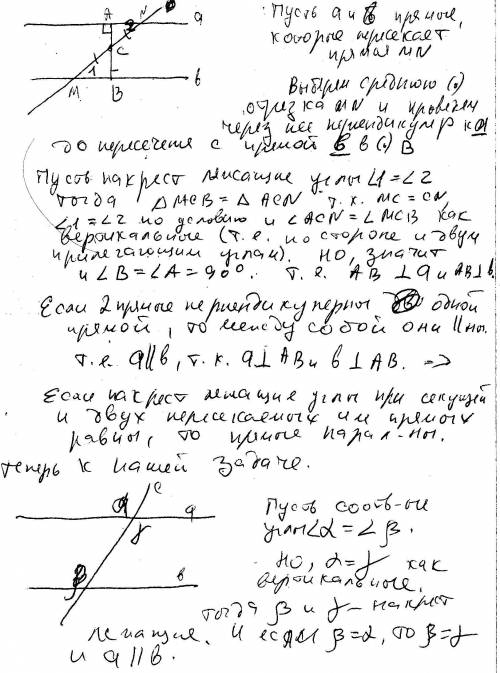 A N a
2
C
1
M B b
Пусть a и b прямые,
которые пересекает
прямая MN
Выберем средн. (.)
отрезка MN и проведем
через нее перпендикуляр к a
до пересечения с прямой b в (.) B
Пусть накрест лежащие углы ∠1=∠2
тогда △MCB = △ACN т.к. MC=CN,
∠1=∠2 по условию и ∠ACN=∠MCB как
вертикальные (т.е. по стороне и двум
прилегающим углам). Но, значит
и ∠B=∠A=90°. т.е. AB ⊥ a и AB ⊥ b.
Если 2 прямые перпендикулярны одной
прямой, то между собой они ||ны.
т.е. a||b, т.к. a⊥AB и b⊥AB. =>
Если накрест лежащие углы при секущей
и двух пересекаемых им прямых
равны, то прямые парал-ны.
теперь к нашей задаче.
c
α a
γ
β b
Пусть соотв-ые
углы ∠α=∠β.
Но, α=γ как
вертикальные,
тогда β и γ – накрест
лежащие. И если β=α, то β=γ
и a||b.